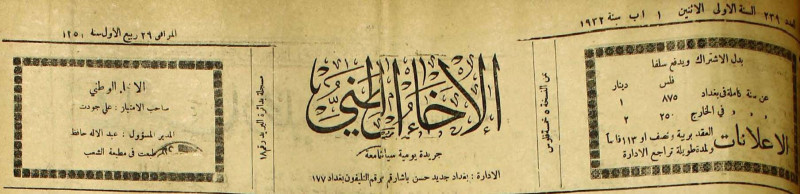 العدد ٢٣٩ السنة الاولى الاثنين ١ اب سنة ١٩٣٢
الموافق ٢٦ ربيع الاول سنة ١٣٥١
بدل الاشتراك ويدفع سلفا
فلس دينار
عن سنة كاملة في بغداد ٨٧٥ ١
في الخارج ٢٥٠ ٢
الاعلانات العقد بربية ونصف او ١١٣ فلساً
ولمدة طويلة تراجع الادارة
ثمن النسخة ٥ فلوس
الاخاء الوطني
جريدة يومية سياسية جامعة
الادارة: بغداد جديد حسن باشا رقم تلفون بغداد ١٧٧
مسجلة بدائرة البريد رقم ١٨
الاخاء الوطني
صاحب الامتياز: علي جودت
المدير المسؤول: عبد الاله حافظ
طبعت في مطبعة الشعب